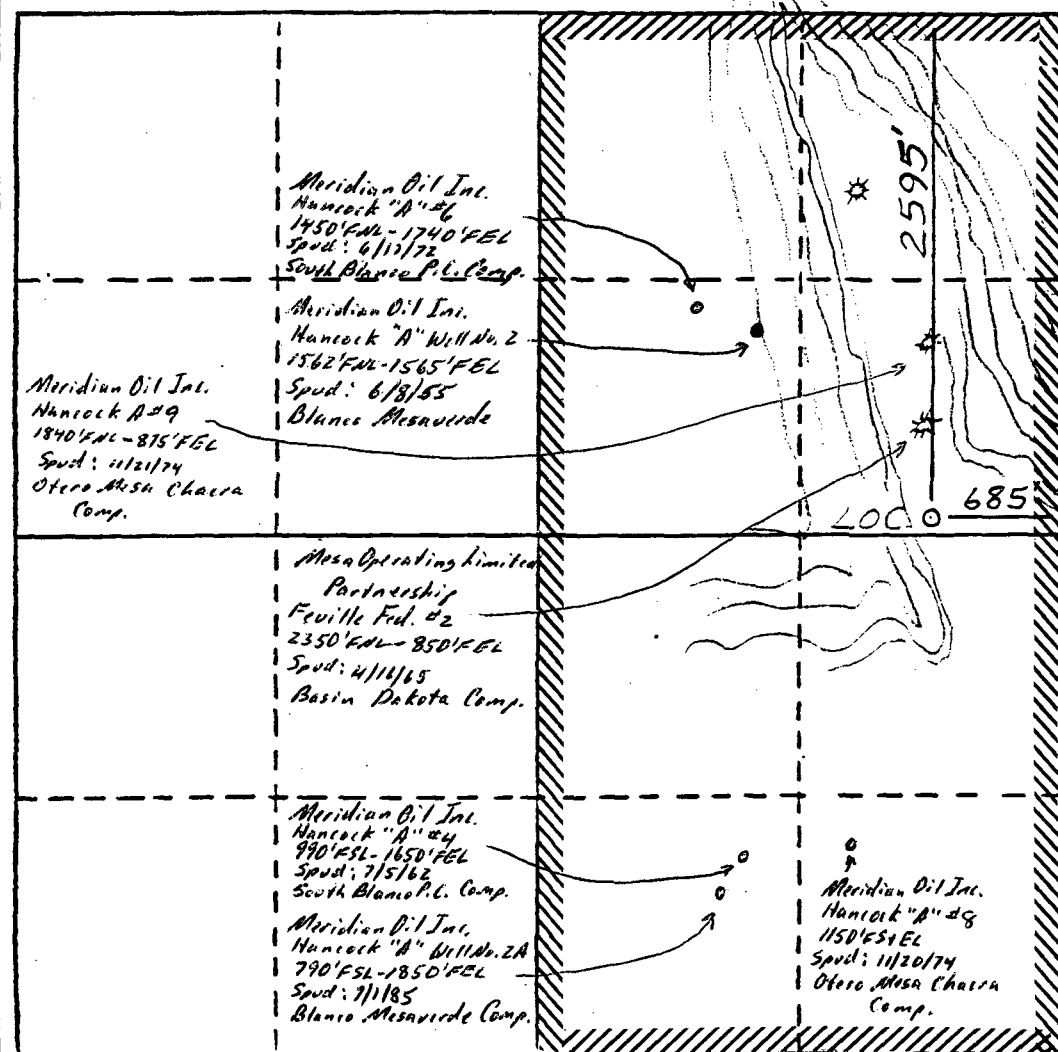 2595'
Meridian Oil Inc.
Hancock "A" #6
1450'FNL-1740'FEL
Spud: 6/17/72
South Blanco P.C. Comp.
Meridian Oil Inc.
Hancock "A" Well No. 2
1562'FNL-1565'FEL
Spud: 6/8/55
Blanco Mesaverde
Meridian Oil Inc.
Hancock A #9
1840'FNL-875'FEL
Spud: 11/21/74
Otero Mesa Chacra
Comp.
685'
LOC
Mesa Operating Limited
Partnership
Feuille Fed. #2
2350'FNL-850'FEL
Spud: 4/16/65
Basin Dakota Comp.
Meridian Oil Inc.
Hancock "A" #4
990'FSL-1650'FEL
Spud: 7/5/62
South Blanco P.C. Comp.
Meridian Oil Inc.
Hancock "A" Well No. 2A
790'FSL-1850'FEL
Spud: 7/1/85
Blanco Mesaverde Comp.
Meridian Oil Inc.
Hancock "A" #8
1150'FS&EL
Spud: 11/20/74
Otero Mesa Chacra
Comp.